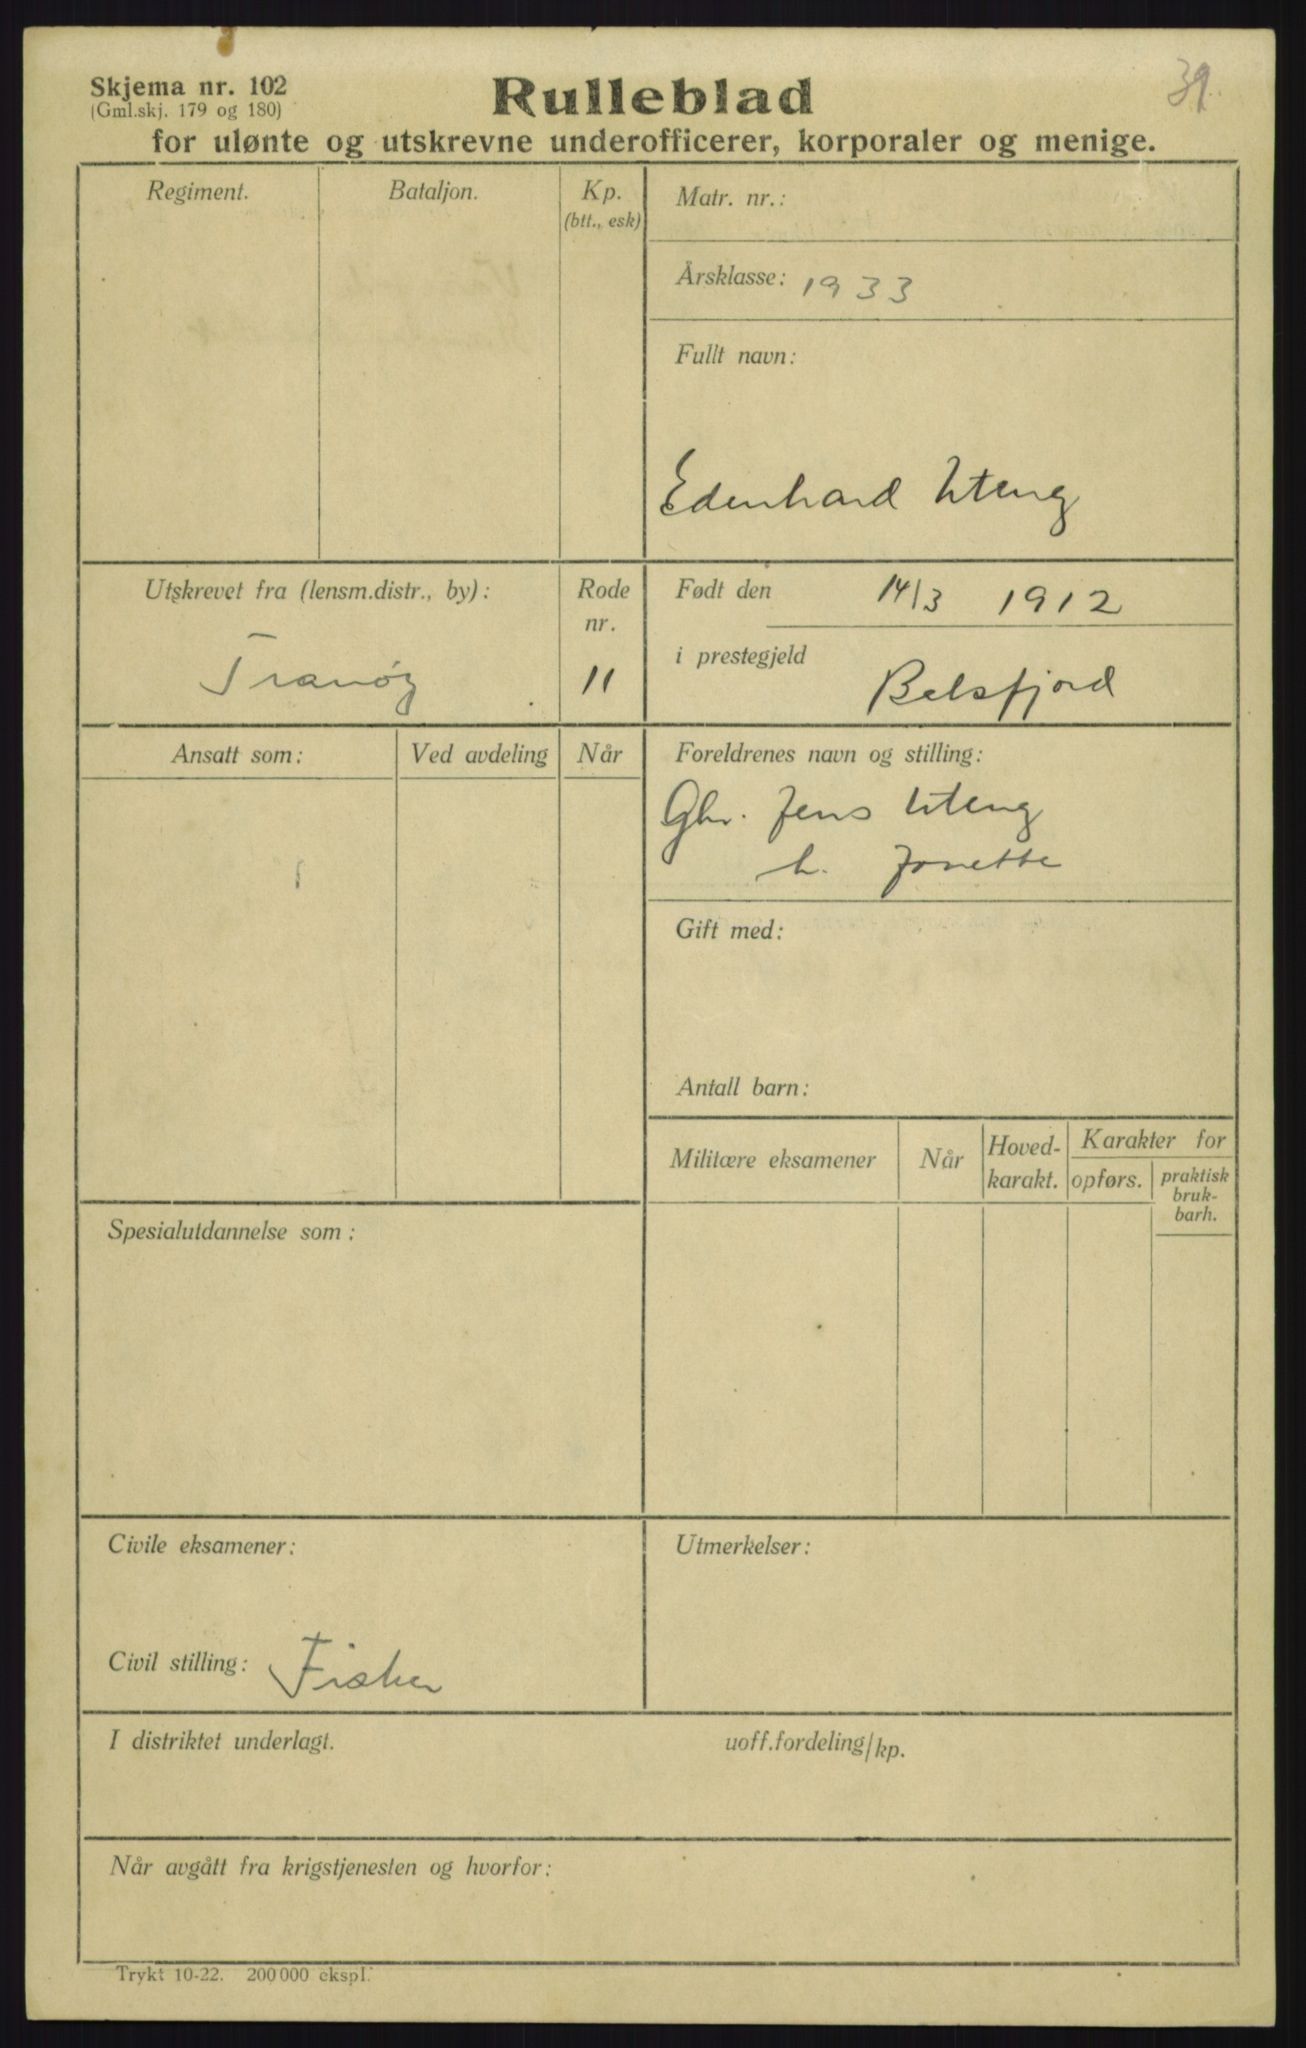 Skjema nr. 102
(Gml.skj. 179 og 180)
Rulleblad
39.
for ulønte og utskrevne underofficerer, korporaler og menige.
Regiment.
Bataljon.
Kp.
(btt., esk)
Matr. nr.:
Årsklasse: 1933
Fullt navn:
Edenhard Uteng
Utskrevet fra (lensm.distr., by):
Tranøy
Rode
nr.
11
Født den 14/3 1912
i prestegjeld Balsfjord
Ansatt som:
Ved avdeling
Når
Foreldrenes navn og stilling:
Gbr. Jens Uteng
h. Jonette
Gift med:
Antall barn:
Militære eksamener
Når
Hoved-
karakt.
Karakter for
opførs.
praktisk
bruk-
barh.
Spesialutdannelse som:
Civile eksamener:
Civil stilling: Fisker
Utmerkelser:
I distriktet underlagt.
uoff.fordeling/kp.
Når avgått fra krigstjenesten og hvorfor:
Trykt 10-22. 200 000 ekspl.